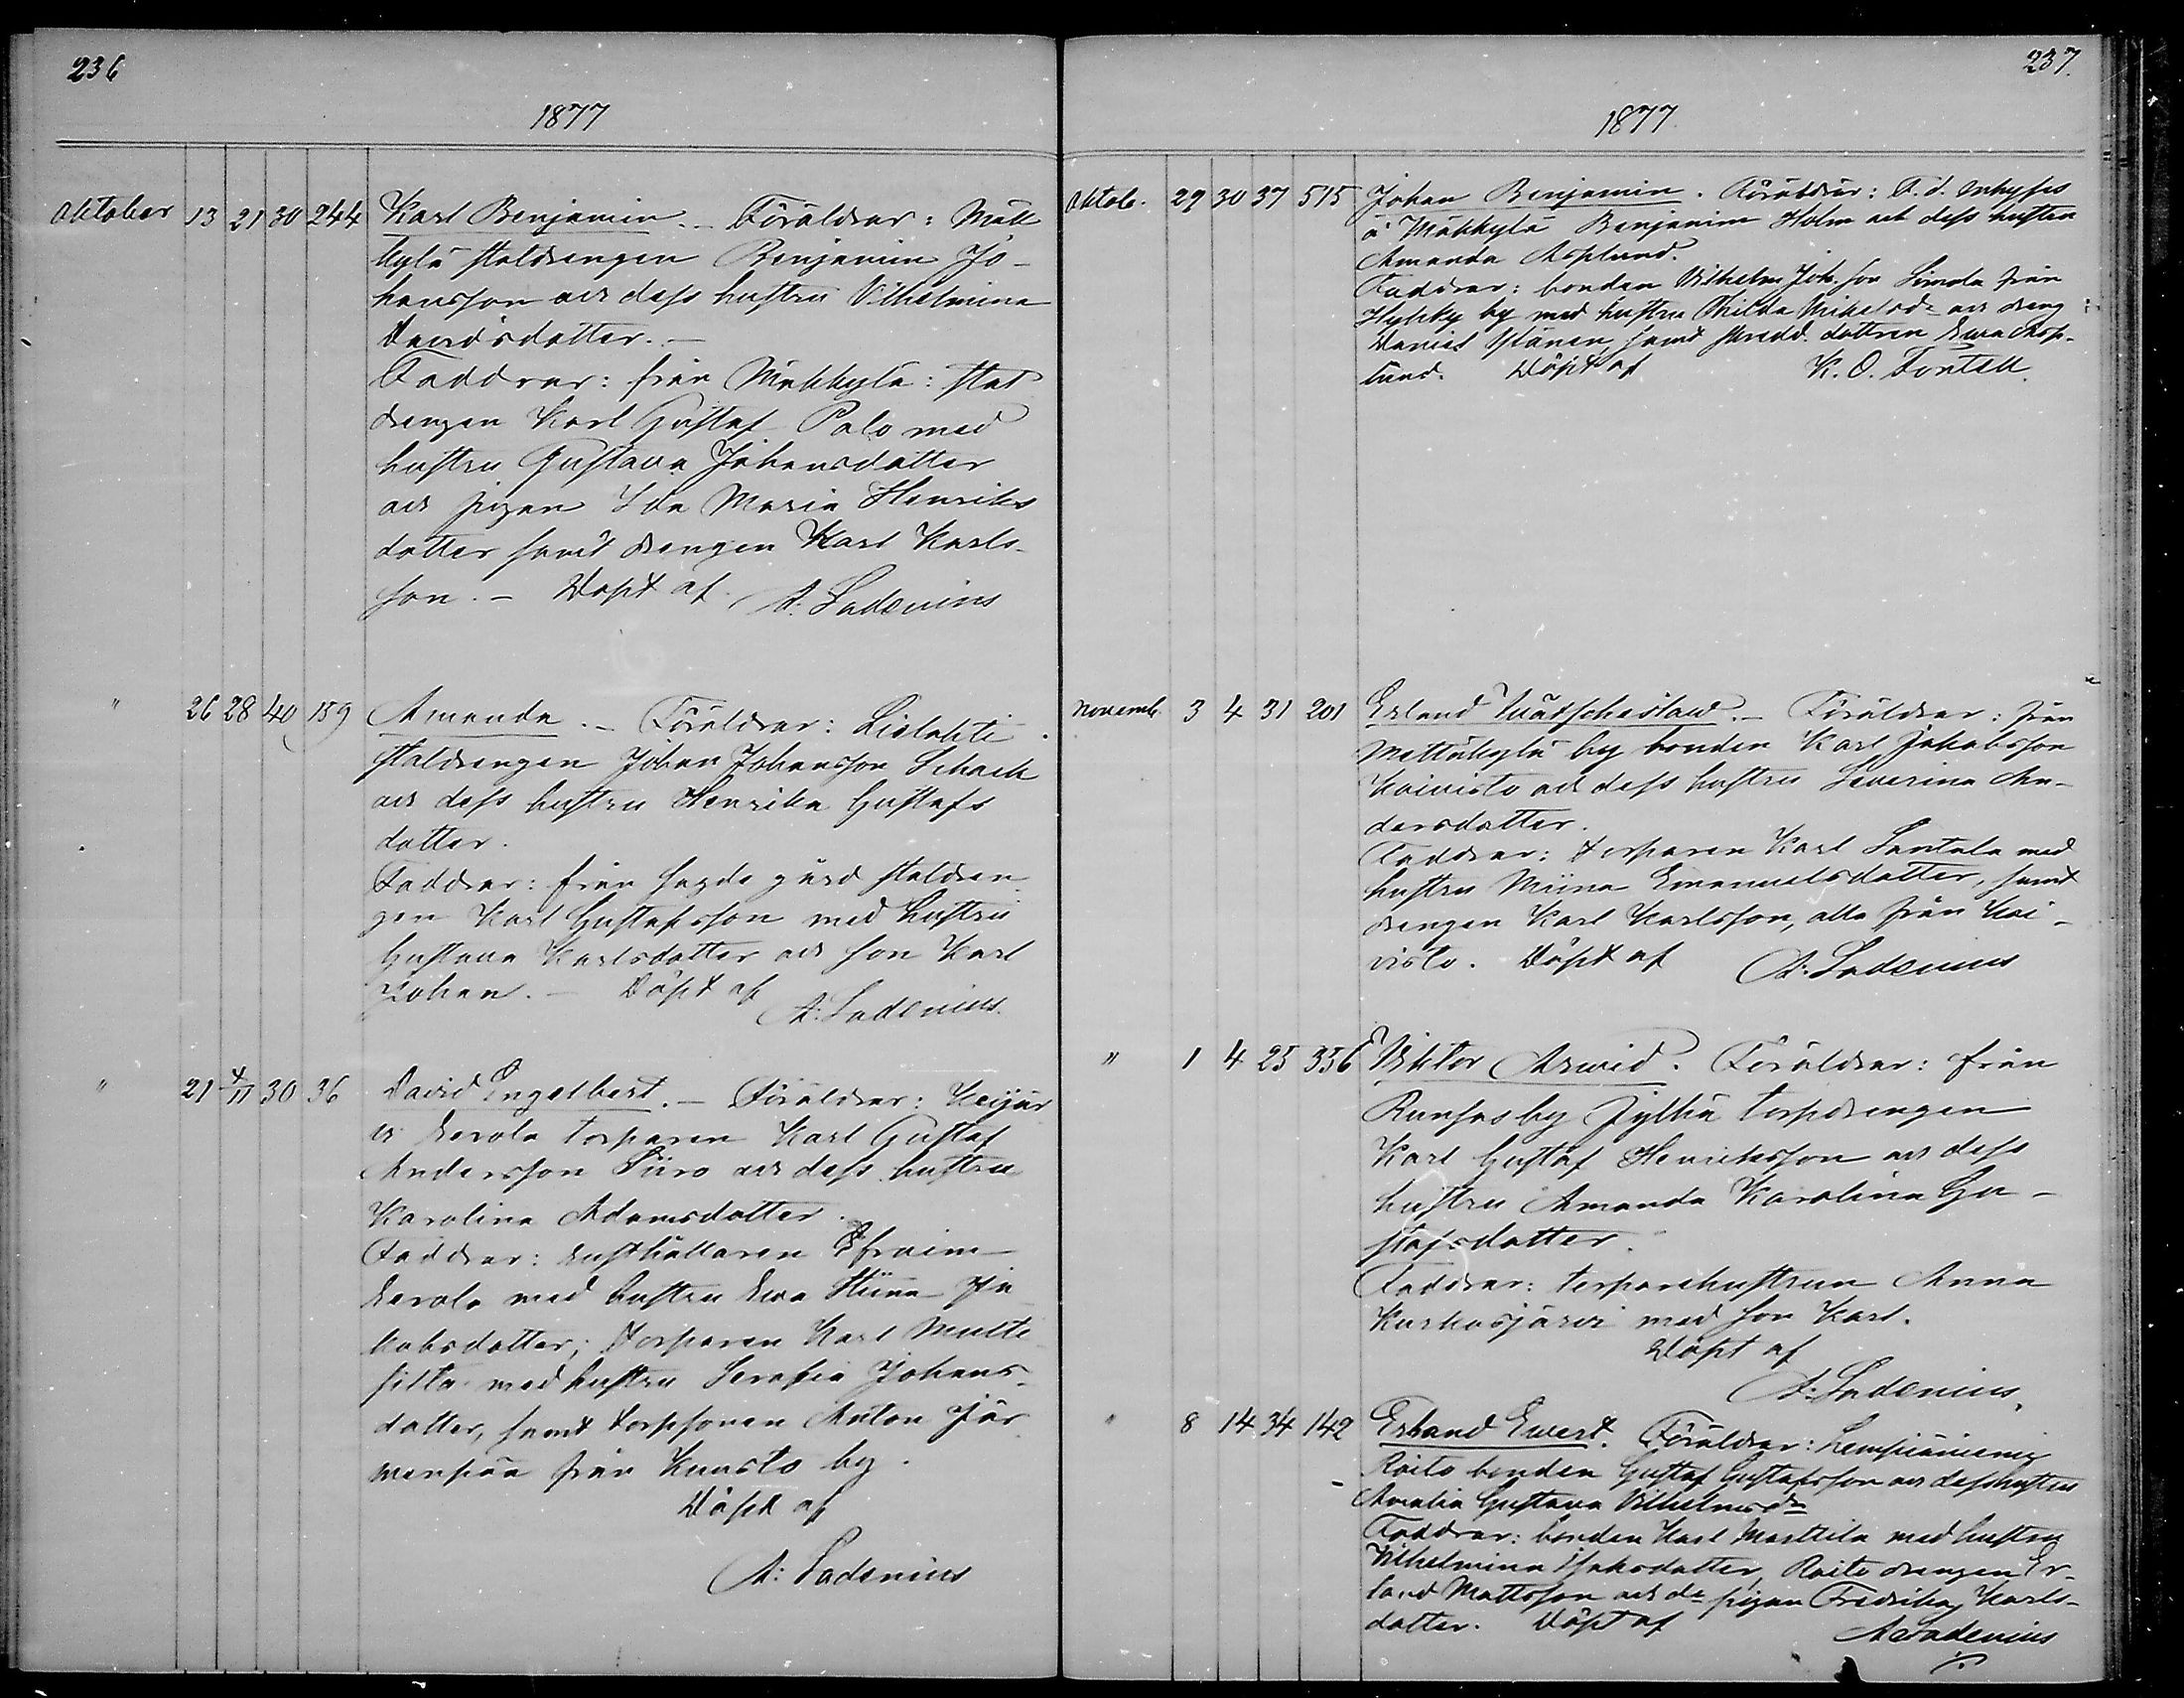 236
1877
Oktober 13 21 30 244 Karl Benjamin. - Föräldrar: Mäk
kylä staldrengen Benjamin Jo-
hansson och dess hustru Vilhelmina
Davidsdotter. -
Faddrar: från Mäkkylä: stal
drengen Karl Gustaf Palo med
hustru Gustava Johansdotter
och pigan Ida Maria Henriks
dotter samt drengen Karl Karls-
son. - Döpt af A: Ladenius
" 26 28 40 159 Amanda. - Föräldrar: Lielahti
staldrengen Johan Johansson Schack
och dess hustru Henrika Gustafs
dotter.
Faddrar: från sagde gård staldren
gen Karl Gustafsson med hustru
Gustava Karlsdotter och son Karl
Johan. - Döpt af
A: Ladenius.
" 21 4/11 30 36 David Engelbert. - Föräldrar: Keijär
vi Eerola torparen Karl Gustaf
Andersson Siiro och dess hustru
Karolina Adamsdotter.
Faddrar: rusthållaren Efraim
Eerola med hustru Eva Stiina Ja
kobsdotter; torparen Karl Multi
silta med hustru Serafia Johans-
dotter, samt torpsonen Anton Jär
wenpää från Kuusto by.
Döpt af
A: Ladenius
237.
1877.
Oktob. 29 30 37 515 Johan Benjamin. Föräldrar: F. d. inhyses
å Mäkkylä Benjamin Holm och dess hustru
Amanda Asplund.
Faddrar: bonden Vilhelm Joh.son Simola från
Hyhky by med hustru Hilda Mikelsdr och dreng
Daniel samt skredd. dottren Eva Asp-
lund. Döpt af K. O. Fontell.
Novemb. 3 4 31 201 Erland . - Föräldrar: från
Mettäkylä by bonden Karl Jakobsson
Koivisto och dess hustru Severina An-
dersdotter.
Faddrar: torparen Karl Santala med
hustru Miina Emanuelsdotter, samt
drengen Karl Karlsson, alla från Koi-
visto. Döpt af A: Ladenius
" 1 4 25 356 Viktor Arwid. Föräldrar: från
Runsas by Jylhä torpdrengen
Karl Gustaf Henriksson och dess
hustru Amanda Karolina Gu-
stafsdotter.
Faddrar: torparehustrun Anna
Kurkasjärvi med son Karl.
Döpt af
A: Ladenius.
" 8 14 34 142 Erland Evert. Föräldrar: Lempiäniemi
Raito bonden Gustaf Gustafsson och dess hustru
Amalia Gustava Vilhelmsdr
Faddrar: bonden Karl Marttila med hustru
Vilhelmina Isaksdotter, Raito drengen Er-
land Mattsson och do pigan Fredrika Karls-
dotter. Döpt af
A Ladenius